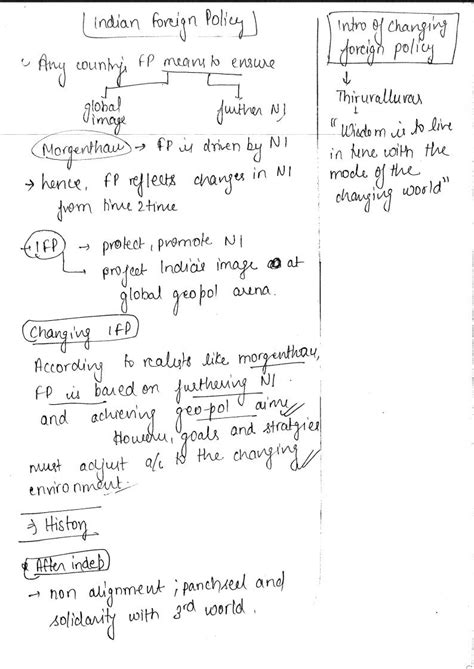 Indian Foreign Policy
Any country's FP means to ensure
global
image
further NI
Morgenthau → FP is driven by NI
→ hence, FP reflects changes in NI
from time 2 time
→ IFP → protect, promote NI
→ project India's image at
global geopol arena.
Changing IFP
According to realists like morgenthau,
FP is based on furthering NI
and achieving geo-pol aims
However, goals and stratgies
must adjust a/c to the changing
environment.
⇒ History
After indep
→ non alignment ; panchseel and
solidarity with 3rd world.
Intro of changing
foreign policy
↓
Thiruvalluvar
"Wisdom is to live
in tune with the
mode of the
changing world"